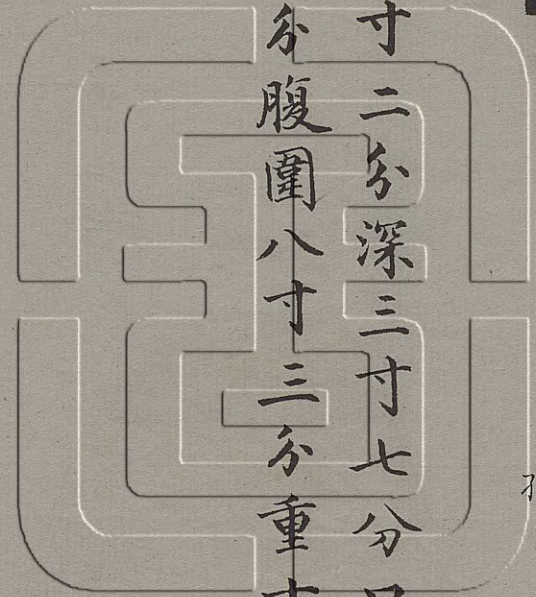 寸二分深三寸七分
分腹圍八寸三分重